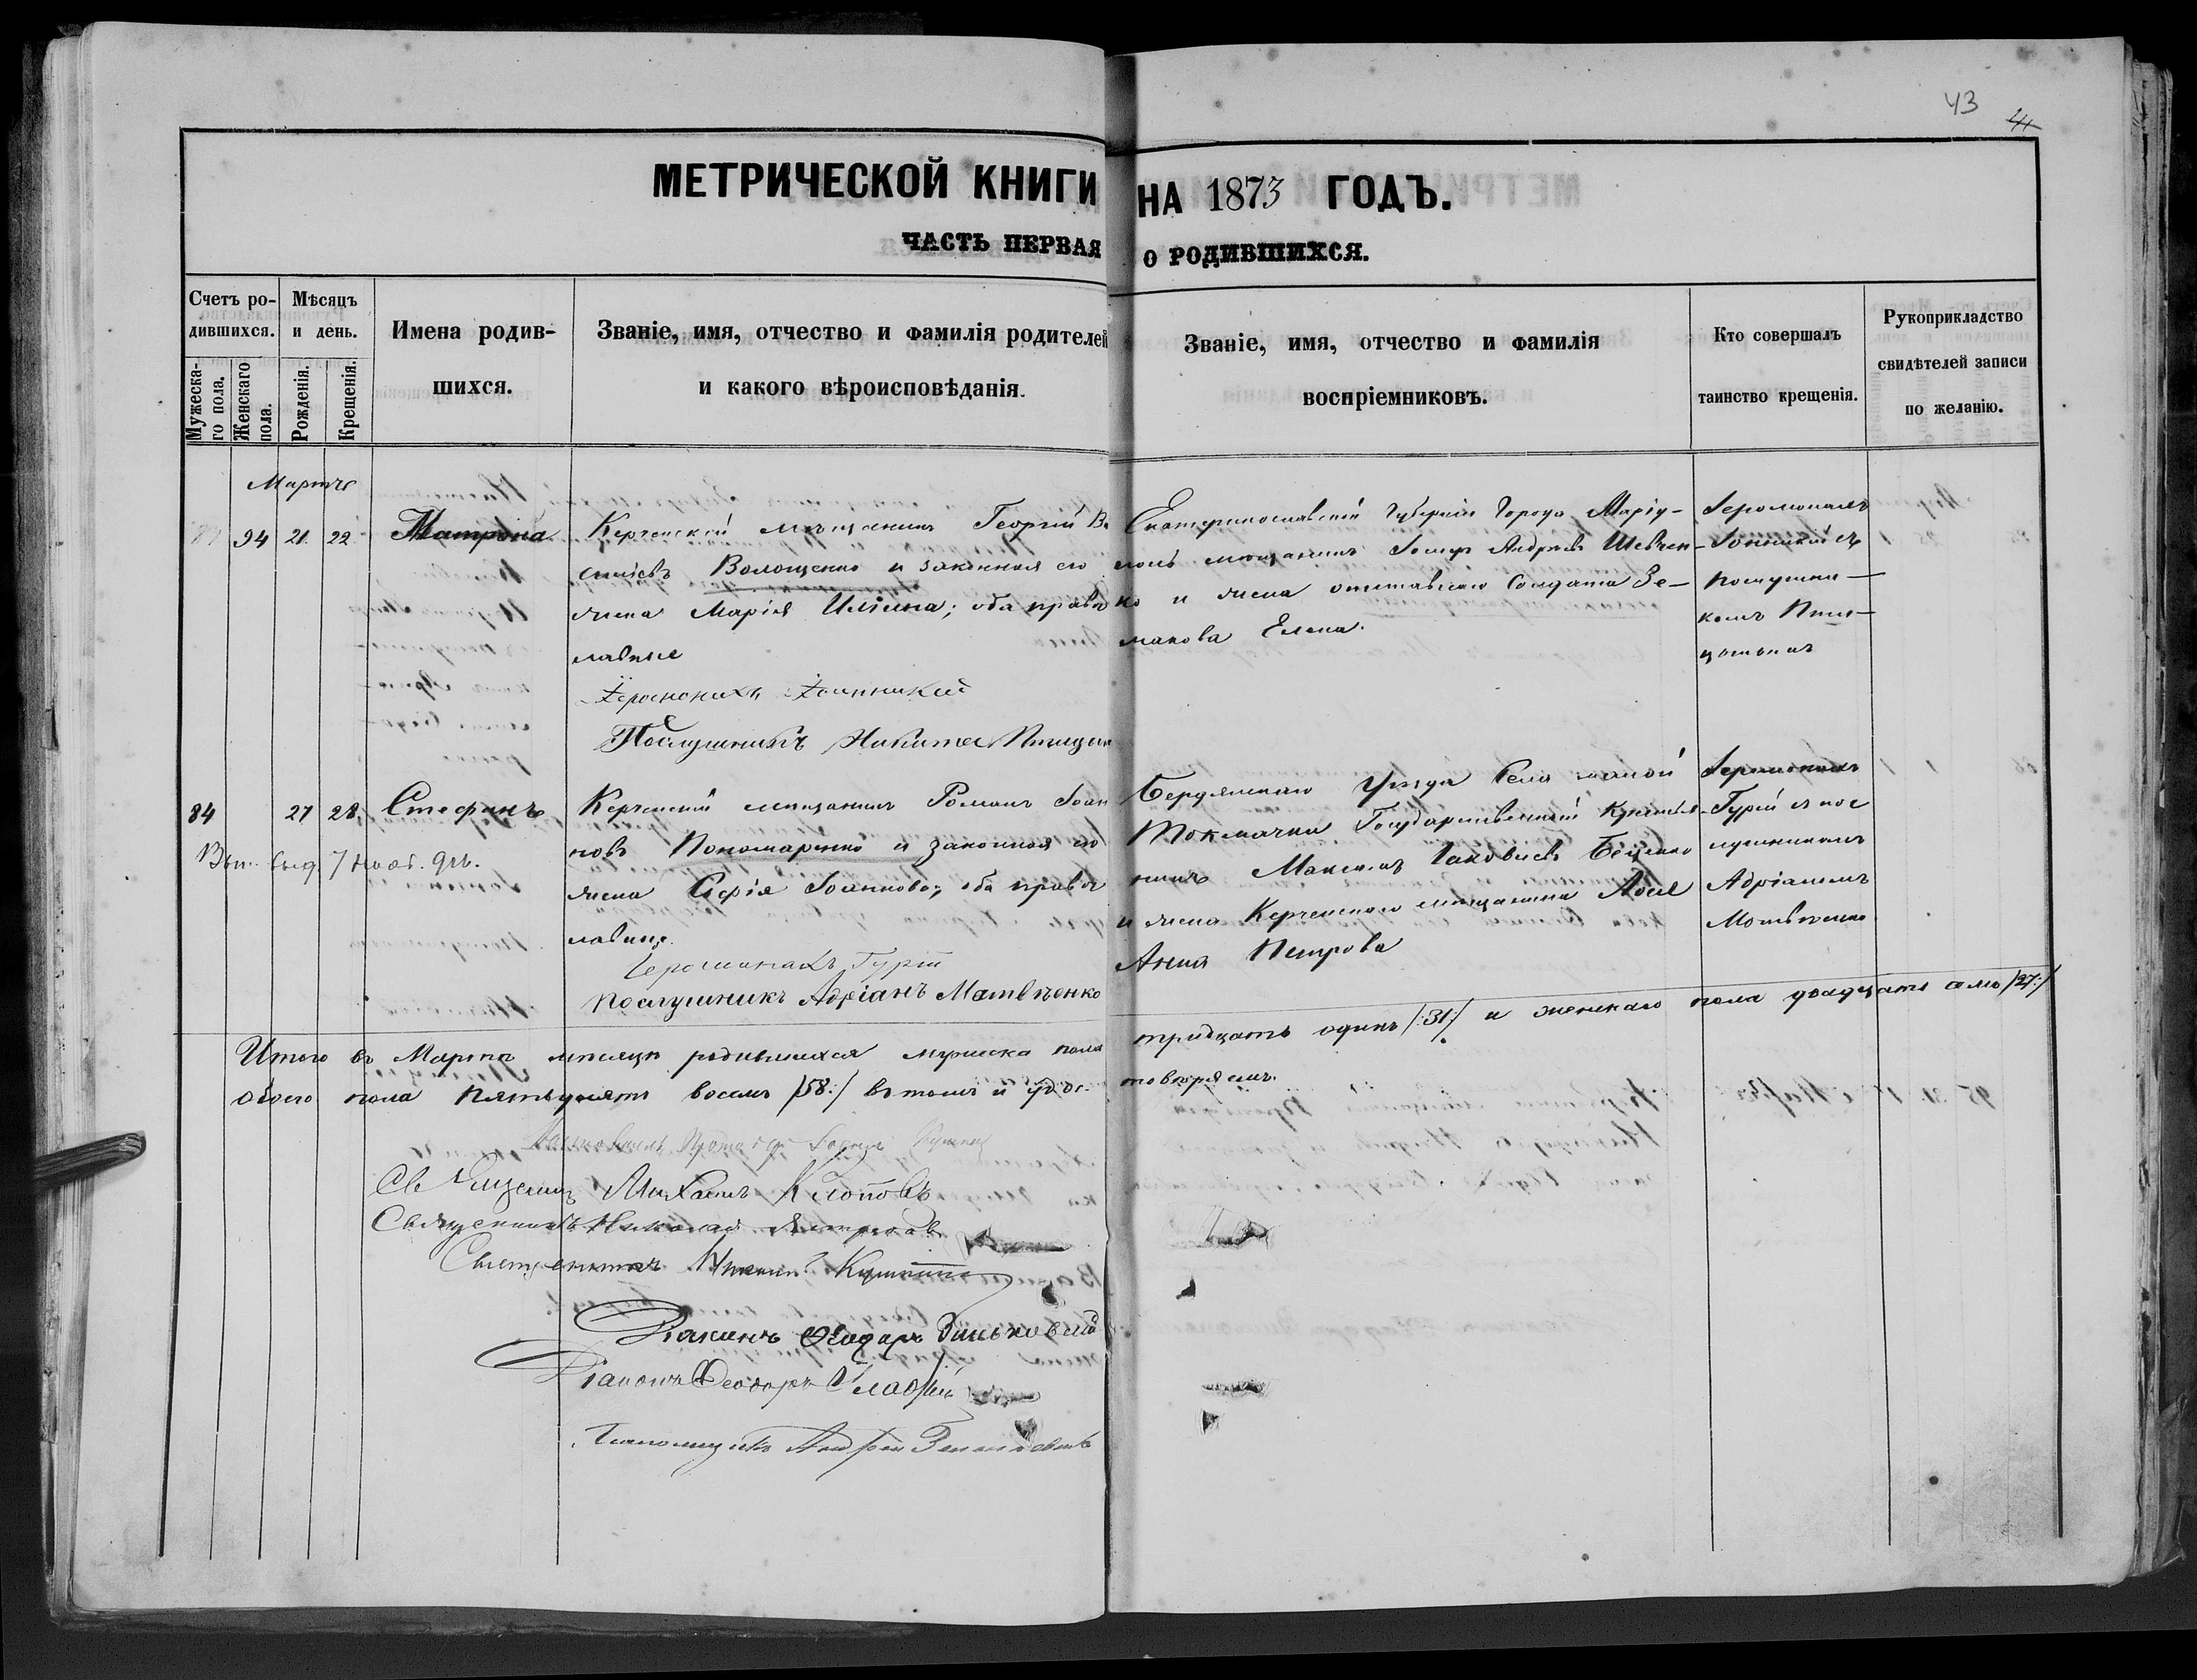 43
41
МЕТРИЧЕСКОЙ КНИГИ НА 1873 ГОДЪ.
ЧАСТЬ ПЕРВАЯ О РОДИВШИХСЯ.
Счетъ ро-
дившихся.
Мужеска-
го пола.
Женскаго
пола.
Мѣсяцъ
и день.
Рожденія.
Крещенія.
Имена родив-
шихся.
Званіе, имя, отчество и фамилія родителей
и какого вѣроисповѣданія.
Званіе, имя, отчество и фамилія
воспріемниковъ.
Кто совершалъ
таинство крещенія.
Рукоприкладство
свидѣтелей записи
по желанію.
Мартъ
94 21 22 Матрона
Керченскій мѣщанинъ Георгій Ва
сильевъ Волощенко и законная его
жена Марія Иліина; оба право
славные
Іеромонахъ Іоанникій
Послушникъ Никита Птицын
Екатеринославской Губерніи Города Маріу-
поль мѣщанинъ Іосифъ Андреевъ Шевчен-
ко и жена отставнаго Солдата Зе-
макова Елена.
Іеромонахъ
Іоанникій съ
послушни-
комъ Пти-
цынымъ
84 27 28 Стефанъ
Вып. выд. 7 нояб. 911.
Керченскій мѣщанинъ Романъ Іоан
новъ Пономаренко и законная его
жена Софія Іоаннова; оба право
славные.
Іеромонахъ Гурій
Послушникъ Адріанъ Матвѣенко
Бердянскаго Уѣзда Села малой
Токмачки Государственный Крестья-
нинъ Максимъ Іаковлевъ Беценко
и жена Керченскаго мѣщанина
Анна Петрова
Іеромонахъ
Гурій съ пос
лушникомъ
Адріаномъ
Матвѣенко
Итого въ Мартѣ мѣсяцѣ родившихся мужеска пола тридцать одинъ /:31:/ и женскаго пола двадцать семь /27:/
обоего пола пятьдесятъ восемь /58:/ въ томъ и удос- товѣряемъ.
Священникъ Михаилъ Клоповъ
Священникъ Николай
Священникъ
Діаконъ Ѳеодоръ Зиньковскій
Діаконъ Ѳеодоръ Гладкій
Псаломщикъ Андрей